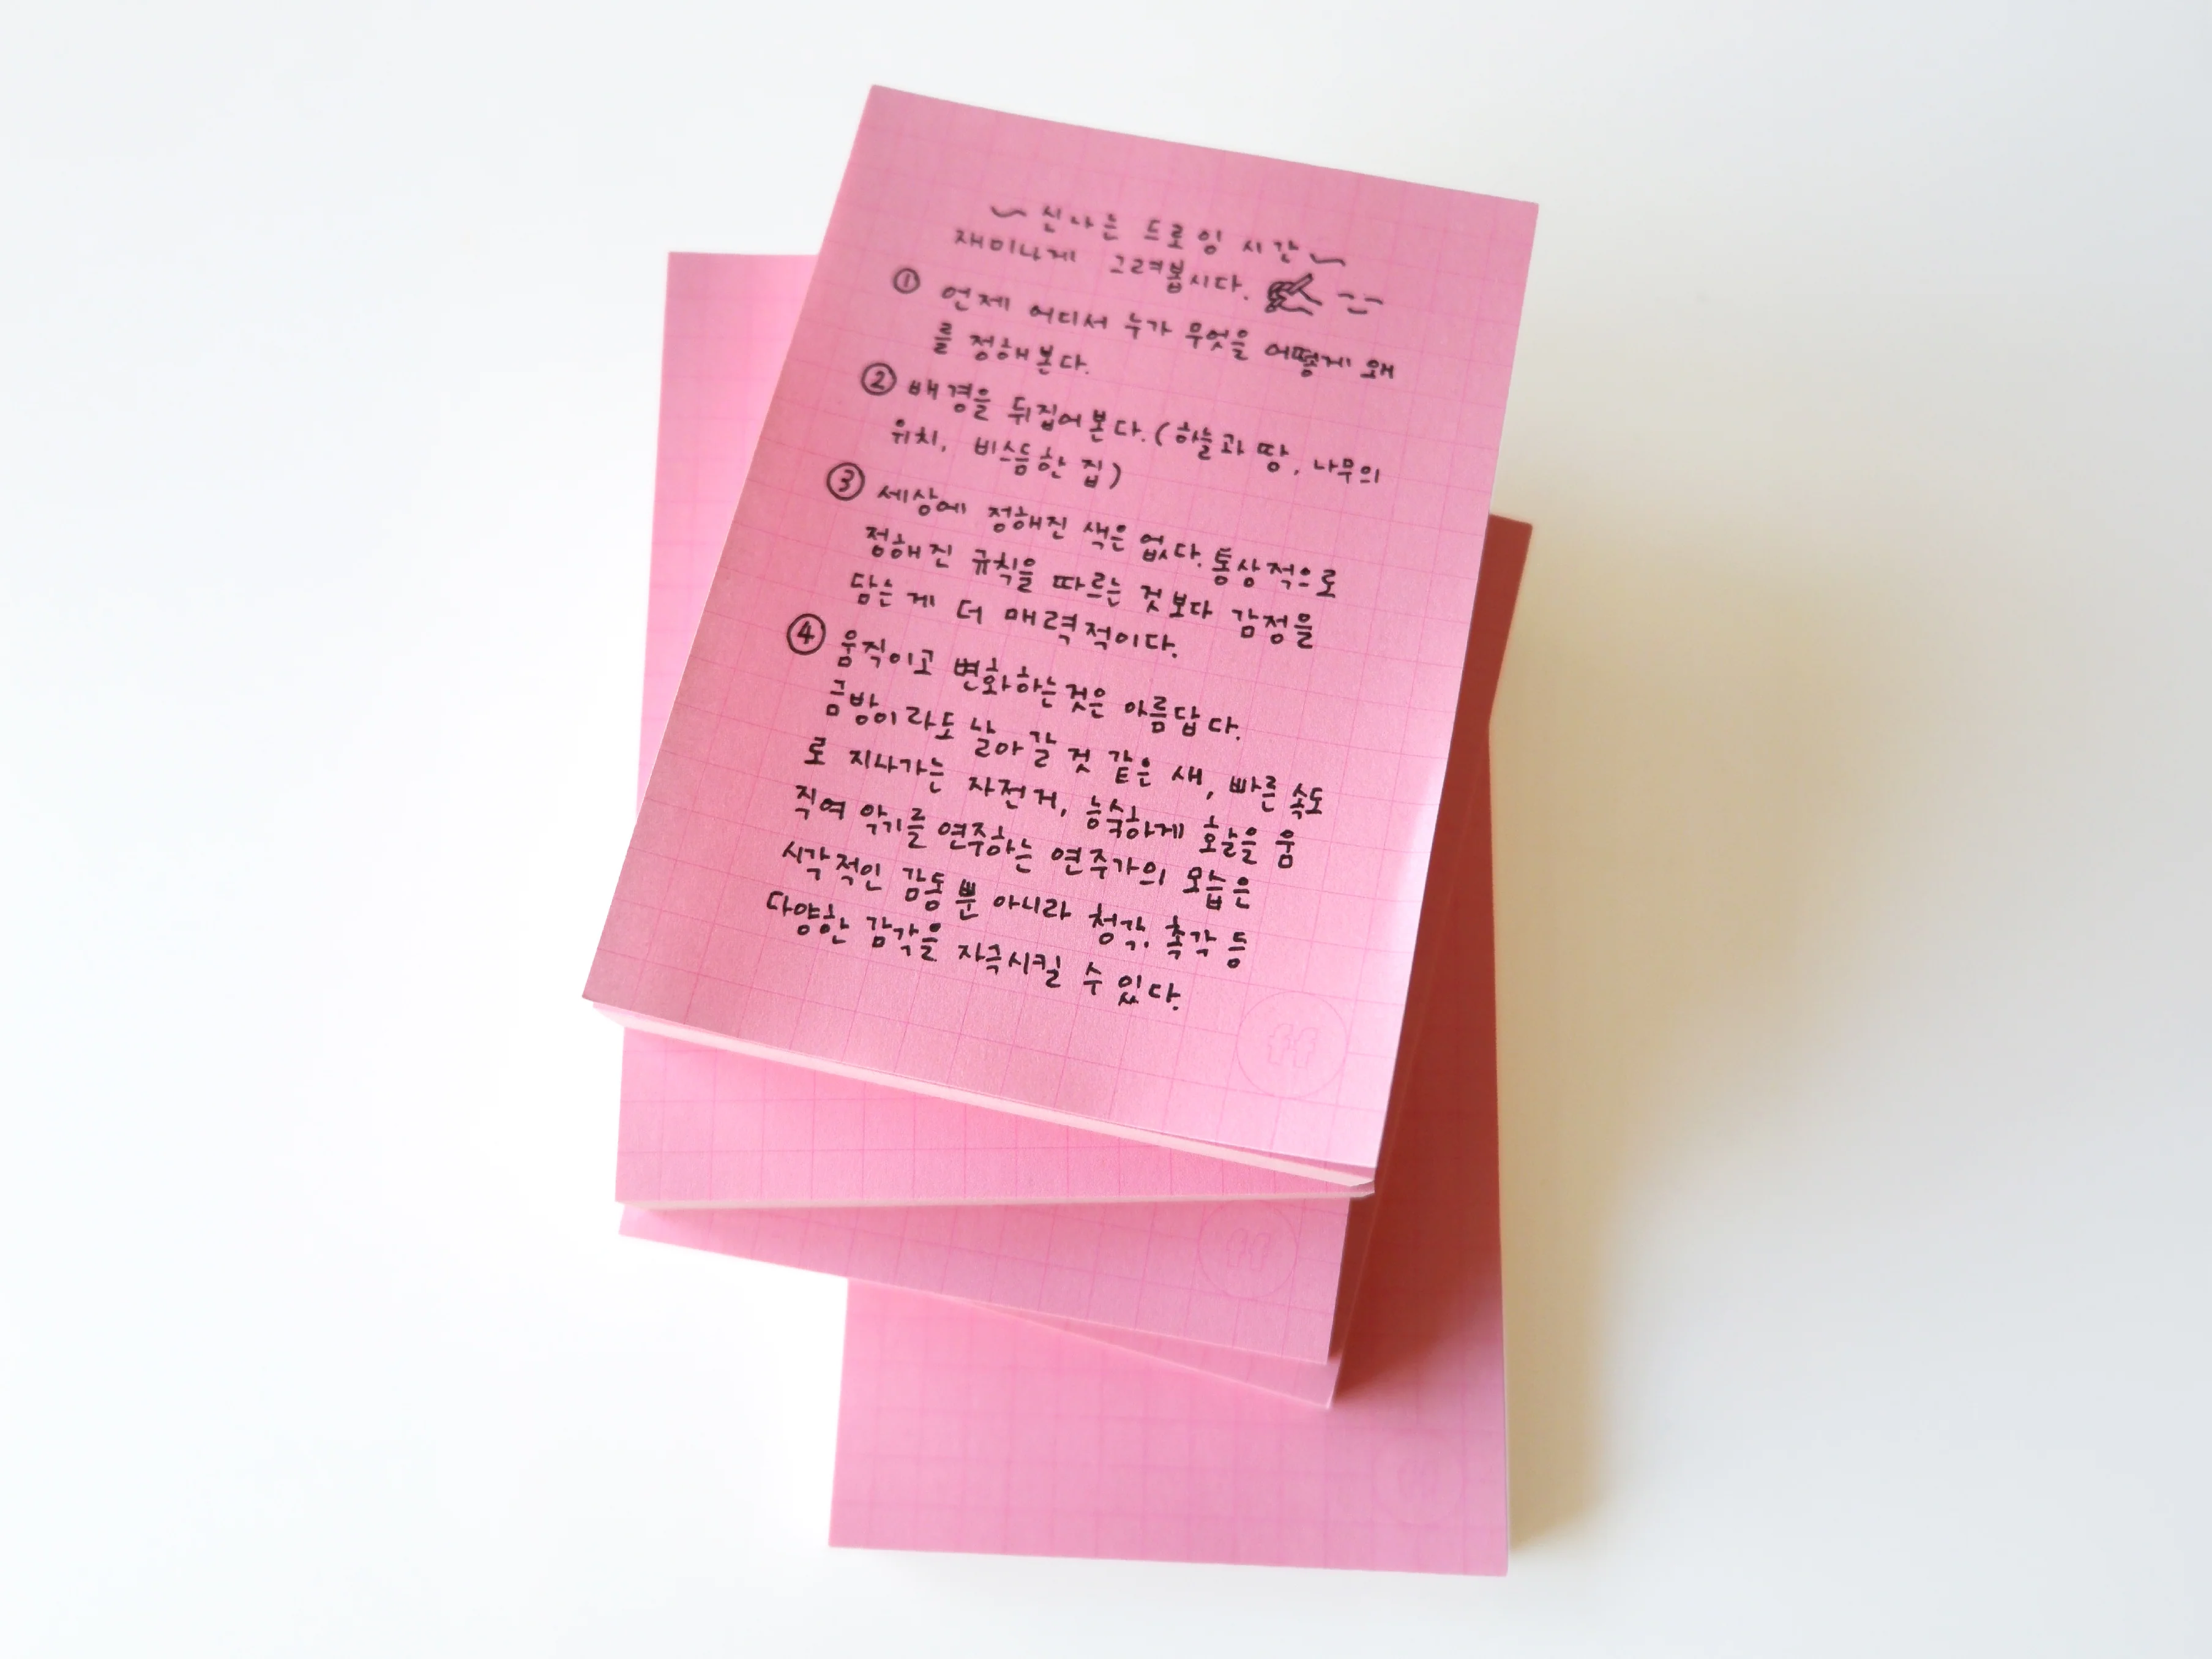 ~ 신나는 드로잉 시간 ~
재미나게 그려봅시다.
① 언제 어디서 누가 무엇을 어떻게 왜
를 정해본다.
② 배경을 뒤집어본다. (하늘과 땅, 나무의
위치, 비스듬한 집)
③ 세상에 정해진 색은 없다. 통상적으로
정해진 규칙을 따르는 것보다 감정을
담는 게 더 매력적이다.
④ 움직이고 변화하는것은 아름답다.
금방이라도 날아갈 것 같은 새, 빠른 속도
로 지나가는 자전거, 능숙하게 활을 움
직여 악기를 연주하는 연주가의 모습은
시각적인 감동 뿐 아니라 청각, 촉각 등
다양한 감각을 자극시킬 수 있다.
ff
ff